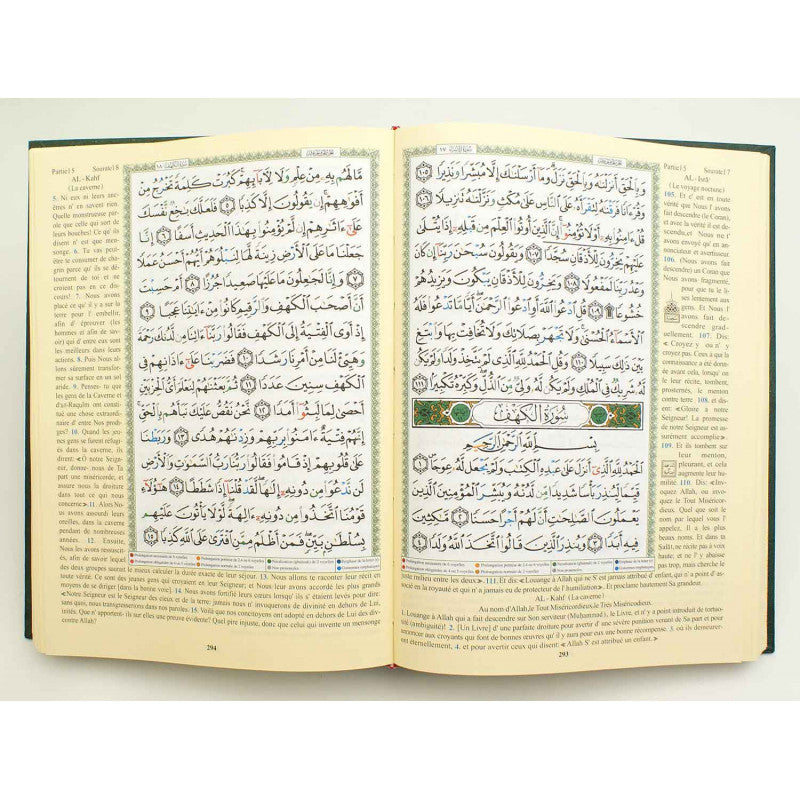 وَبِالْحَقِّ أَنزَلْنَاهُ وَبِالْحَقِّ نَزَلَ وَمَا أَرْسَلْنَاكَ إِلَّا مُبَشِّرًا وَنَذِيرًا ١٠٥
وَقُرْءَانًا فَرَقْنَاهُ لِتَقْرَأَهُ عَلَى النَّاسِ عَلَىٰ مُكْثٍ وَنَزَّلْنَاهُ تَنزِيلًا ١٠٦
قُلْ ءَامِنُوا بِهِ أَوْ لَا تُؤْمِنُوا إِنَّ الَّذِينَ أُوتُوا الْعِلْمَ مِن قَبْلِهِ إِذَا يُتْلَىٰ
عَلَيْهِمْ يَخِرُّونَ لِلْأَذْقَانِ سُجَّدًا ١٠٧ وَيَقُولُونَ سُبْحَانَ رَبِّنَا إِن كَانَ
وَعْدُ رَبِّنَا لَمَفْعُولًا ١٠٨ وَيَخِرُّونَ لِلْأَذْقَانِ يَبْكُونَ وَيَزِيدُهُمْ
خُشُوعًا ١٠٩ قُلِ ادْعُوا اللَّهَ أَوِ ادْعُوا الرَّحْمَٰنَ أَيًّا مَّا تَدْعُوا فَلَهُ
الْأَسْمَاءُ الْحُسْنَىٰ وَلَا تَجْهَرْ بِصَلَاتِكَ وَلَا تُخَافِتْ بِهَا وَابْتَغِ
بَيْنَ ذَٰلِكَ سَبِيلًا ١١٠ وَقُلِ الْحَمْدُ لِلَّهِ الَّذِي لَمْ يَتَّخِذْ وَلَدًا وَلَمْ يَكُن
لَّهُ شَرِيكٌ فِي الْمُلْكِ وَلَمْ يَكُن لَّهُ وَلِيٌّ مِّنَ الذُّلِّ وَكَبِّرْهُ تَكْبِيرًا ١١١
سُورَةُ الْكَهْفِ
بِسْمِ اللَّهِ الرَّحْمَٰنِ الرَّحِيمِ
الْحَمْدُ لِلَّهِ الَّذِي أَنزَلَ عَلَىٰ عَبْدِهِ الْكِتَابَ وَلَمْ يَجْعَل لَّهُ عِوَجًا ١
قَيِّمًا لِّيُنذِرَ بَأْسًا شَدِيدًا مِّن لَّدُنْهُ وَيُبَشِّرَ الْمُؤْمِنِينَ الَّذِينَ
يَعْمَلُونَ الصَّالِحَاتِ أَنَّ لَهُمْ أَجْرًا حَسَنًا ٢ مَّاكِثِينَ
فِيهِ أَبَدًا ٣ وَيُنذِرَ الَّذِينَ قَالُوا اتَّخَذَ اللَّهُ وَلَدًا ٤
Partie15 Sourate17
AL - Isrâ'
(Le voyage nocturne)
105. Et c'est en toute
vérité que Nous l'avons
fait descendre (le Coran),
et avec la vérité il est
descendu. Et Nous ne t'
avons envoyé qu'en an-
nonciateur et avertisseur.
106. (Nous avons fait
descendre) un Coran que
Nous avons fragmenté,
pour que tu le li-
ses lentement aux
gens. Et Nous l'
avons fait des-
cendre grad-
uellement. 107. Dis:
«Croyez y ou n' y
croyez pas. Ceux à qui la
connaissance a été donnée
avant cela, lorsqu' on le
leur récite, tombent,
prosternés, le menton
contre terre 108. et di-
sent: «Gloire à notre
Seigneur! La promesse
de notre Seigneur est as-
surément accomplie».
109. Et ils tombent sur
leur menton,
pleurant, et cela
augmente leur hu-
milité. 110. Dis: «Inv-
oquez Allah, ou invoquez
le Tout Miséricor-
dieux. Quel que soit le
nom par lequel vous l'
appelez, Il a les plus
beaux noms. Et dans ta
Salât, ne récite pas à
voix haute; et ne l'y
abaisse pas trop, mais cherche le
juste milieu entre les deux». 111. Et dis: «Louange à Allah qui ne S' est jamais attribué d' enfant, qui n'a point d' as-
socié en la royauté et qui n' a jamais eu de protecteur de l'humiliation». Et proclame hautement Sa grandeur.
AL - Kahf (La caverne)
Au nom d'Allah,le Tout Miséricordieux,le Très Miséricordieux.
1. Louange à Allah qui a fait descendre sur Son serviteur (Muḥammad), le Livre, et n'y a point introduit de tortuo-
sité (ambiguïté)! 2. [Un Livre] d' une parfaite droiture pour avertir d' une sévère punition venant de Sa part et pour
annoncer aux croyants qui font de bonnes œuvres qu' il y aura pour eux une bonne récompense. 3. où ils demeurer-
ont éternellement, 4. et pour avertir ceux qui disent: «Allah S' est attribué un enfant.»
293
مَّا لَهُم بِهِ مِنْ عِلْمٍ وَلَا لِآبَائِهِمْ كَبُرَتْ كَلِمَةً تَخْرُجُ مِنْ
أَفْوَاهِهِمْ إِن يَقُولُونَ إِلَّا كَذِبًا ٥ فَلَعَلَّكَ بَاخِعٌ نَّفْسَكَ
عَلَىٰ ءَاثَارِهِمْ إِن لَّمْ يُؤْمِنُوا بِهَٰذَا الْحَدِيثِ أَسَفًا ٦ إِنَّا
جَعَلْنَا مَا عَلَى الْأَرْضِ زِينَةً لَّهَا لِنَبْلُوَهُمْ أَيُّهُمْ أَحْسَنُ عَمَلًا
٧ وَإِنَّا لَجَاعِلُونَ مَا عَلَيْهَا صَعِيدًا جُرُزًا ٨ أَمْ حَسِبْتَ
أَنَّ أَصْحَابَ الْكَهْفِ وَالرَّقِيمِ كَانُوا مِنْ ءَايَاتِنَا عَجَبًا ٩
إِذْ أَوَى الْفِتْيَةُ إِلَى الْكَهْفِ فَقَالُوا رَبَّنَا ءَاتِنَا مِن لَّدُنكَ رَحْمَةً
وَهَيِّئْ لَنَا مِنْ أَمْرِنَا رَشَدًا ١٠ فَضَرَبْنَا عَلَىٰ ءَاذَانِهِمْ فِي
الْكَهْفِ سِنِينَ عَدَدًا ١١ ثُمَّ بَعَثْنَاهُمْ لِنَعْلَمَ أَيُّ الْحِزْبَيْنِ
أَحْصَىٰ لِمَا لَبِثُوا أَمَدًا ١٢ نَّحْنُ نَقُصُّ عَلَيْكَ نَبَأَهُم بِالْحَقِّ
إِنَّهُمْ فِتْيَةٌ ءَامَنُوا بِرَبِّهِمْ وَزِدْنَاهُمْ هُدًى ١٣ وَرَبَطْنَا
عَلَىٰ قُلُوبِهِمْ إِذْ قَامُوا فَقَالُوا رَبُّنَا رَبُّ السَّمَاوَاتِ وَالْأَرْضِ
لَن نَّدْعُوَا مِن دُونِهِ إِلَٰهًا لَّقَدْ قُلْنَا إِذًا شَطَطًا ١٤ هَٰؤُلَاءِ
قَوْمُنَا اتَّخَذُوا مِن دُونِهِ ءَالِهَةً لَّوْلَا يَأْتُونَ عَلَيْهِم
بِسُلْطَانٍ بَيِّنٍ فَمَنْ أَظْلَمُ مِمَّنِ افْتَرَىٰ عَلَى اللَّهِ كَذِبًا ١٥
Partie15 Sourate18
AL - Kahf
(La caverne)
5. Ni eux ni leurs anc-
êtres n' en savent rien.
Quelle monstrueuse par-
ole que celle qui sort de
leurs bouches! Ce qu' ils
disent n' est que men-
songe. 6. Tu vas peut-
être te consumer de chag-
rin parce qu' ils se dét-
ournent de toi et ne
croient pas en ce dis-
cours! 7. Nous avons
placé ce qu' il y a sur la
terre pour l' embellir,
afin d' éprouver (les
hommes et afin de savoir)
qui d' entre eux sont
les meilleurs dans leurs
actions. 8. Puis Nous al-
lons sûrement transfor-
mer sa surface en un sol
aride. 9. Penses- tu que
les gens de la Caverne et
d'ar-Raquîm ont constitué
une chose extraordi-
naire d' entre Nos prod-
iges? 10. Quand les jeu-
nes gens se furent réfugi-
és dans la caverne, ils
dirent: «Ô notre Seign-
eur, donne- nous de Ta
part une miséricorde,
et assure nous la droiture
dans tout ce qui nous
concerne».11. Alors Nous
avons assourdi leurs
oreilles, dans la caverne
pendant de nombreuses
années. 12. Ensuite,
Nous les avons ressuscit-
és, afin de savoir lequel
des deux groupes saurait le mieux calculer la durée exacte de leur séjour. 13. Nous allons te raconter leur récit en
toute vérité. Ce sont des jeunes gens qui croyaient en leur Seigneur; et Nous leur avons accordé les plus grands
moyens de se diriger [dans la bonne voie]. 14. Nous avons fortifié leurs cœurs lorsqu' ils s' étaient levés pour dire:
«Notre Seigneur est le Seigneur des cieux et de la terre: jamais nous n' invoquerons de divinité en dehors de Lui,
sans quoi, nous transgresserions dans nos paroles. 15. Voilà que nos concitoyens ont adopté en dehors de Lui des div-
inités. Que n' apportent- ils sur elles une preuve évidente? Quel pire injuste, donc que celui qui invente un mensonge
contre Allah?
294